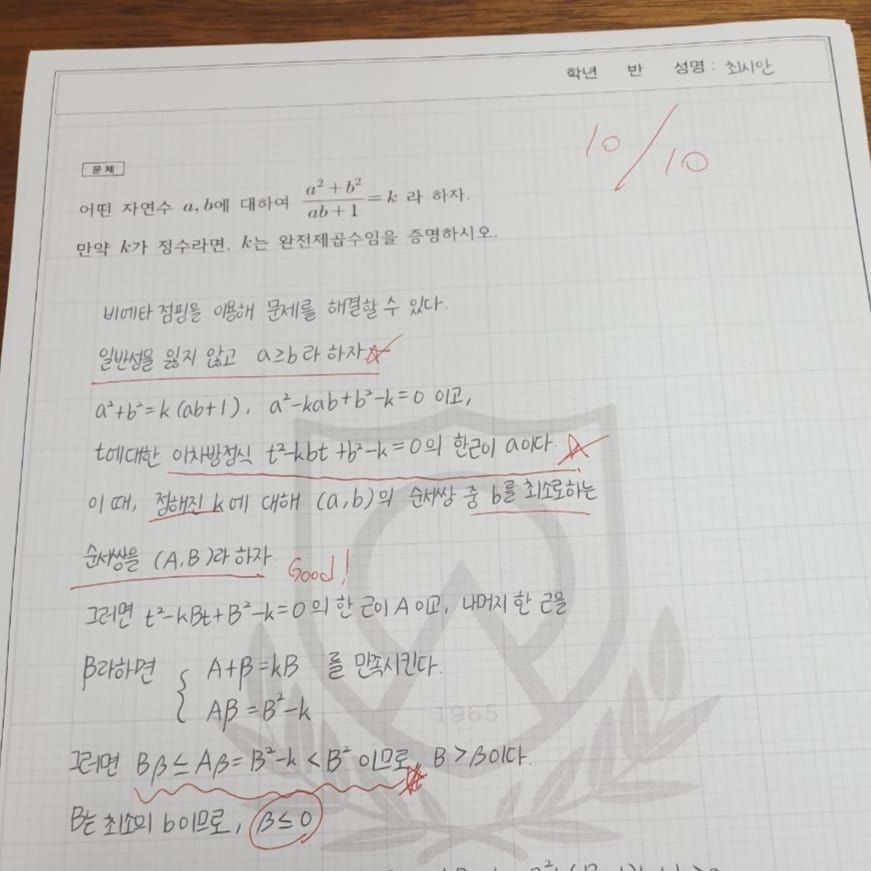 학년 반 성명 : 최시안
10/10
문제
어떤 자연수 a, b에 대하여 \frac{a²+b²}{ab+1}=k 라 하자.
만약 k가 정수라면, k는 완전제곱수임을 증명하시오.
비에타 점핑을 이용해 문제를 해결할 수 있다.
일반성을 잃지 않고 a≥b라 하자
a²+b²=k(ab+1), a²-kab+b²-k=0 이고,
t에 대한 이차방정식 t²-kbt+b²-k=0의 한 근이 a이다.
이 때, 정해진 k에 대해 (a,b)의 순서쌍 중 b를 최소로 하는
순서쌍을 (A,B)라 하자. Good!
그러면 t²-kBt+B²-k=0의 한 근이 A이고, 나머지 한 근을
β라하면 { A+β=kB 를 만족시킨다.
Aβ=B²-k
1965
그러면 Bβ≤Aβ=B²-k<B² 이므로, B>β이다.
B는 최소의 b이므로, β≤0